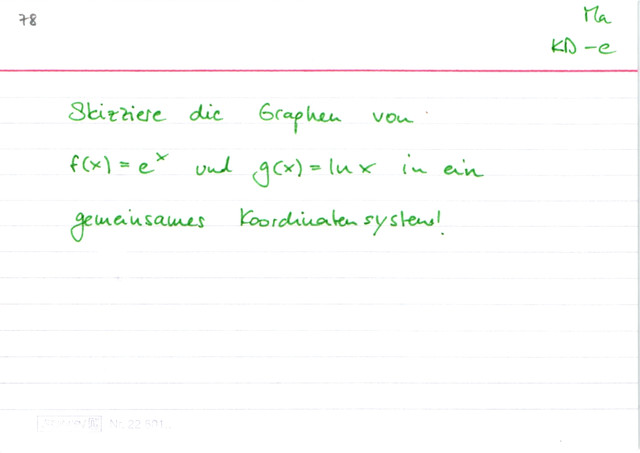 78
Ma
KD-e
Skizziere die Graphen von
f(x) = e^x und g(x) = ln x in ein
gemeinsames Koordinatensystem!
Nr. 22 801